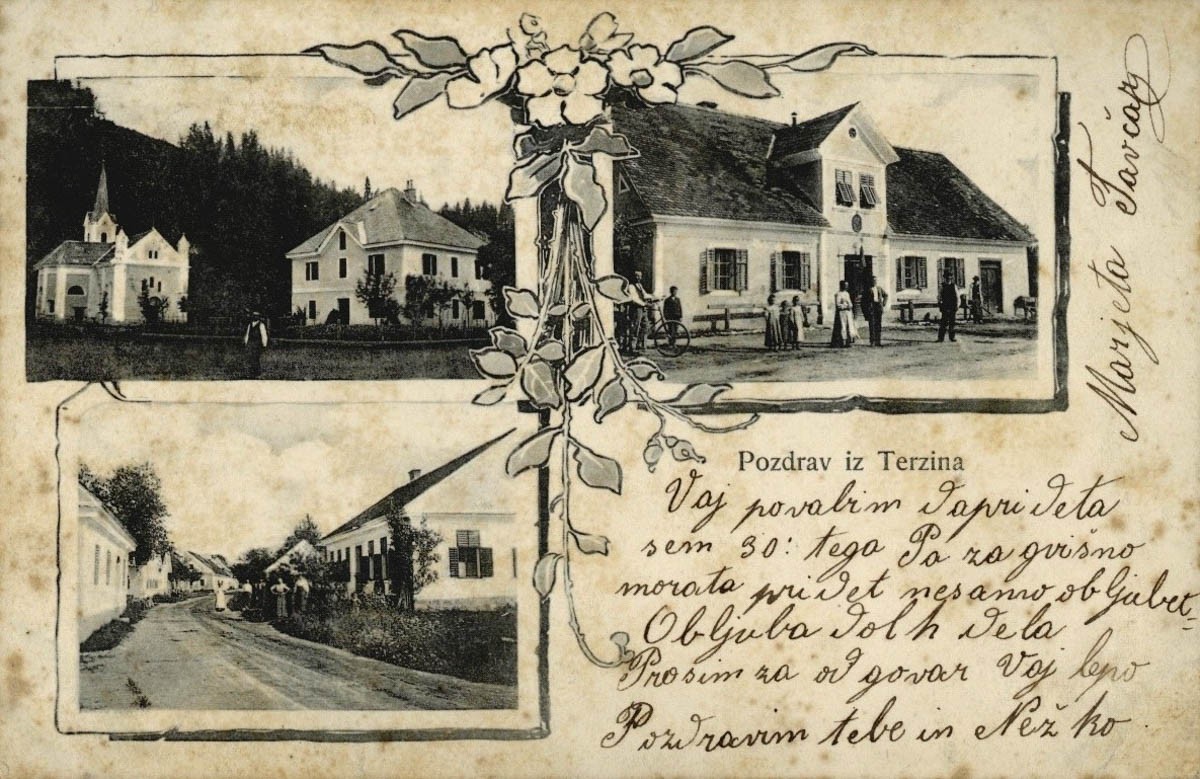 Pozdrav iz Terzina
Vaj povabim dapri deta
sem 30: tega Pa za gvišno
morata pridet nesamo obljubet=
Obljuba dolh dela
Prosim za od govar Vaj lepo
Pozdravim tebe in Nežko
Marjeta Tavčar